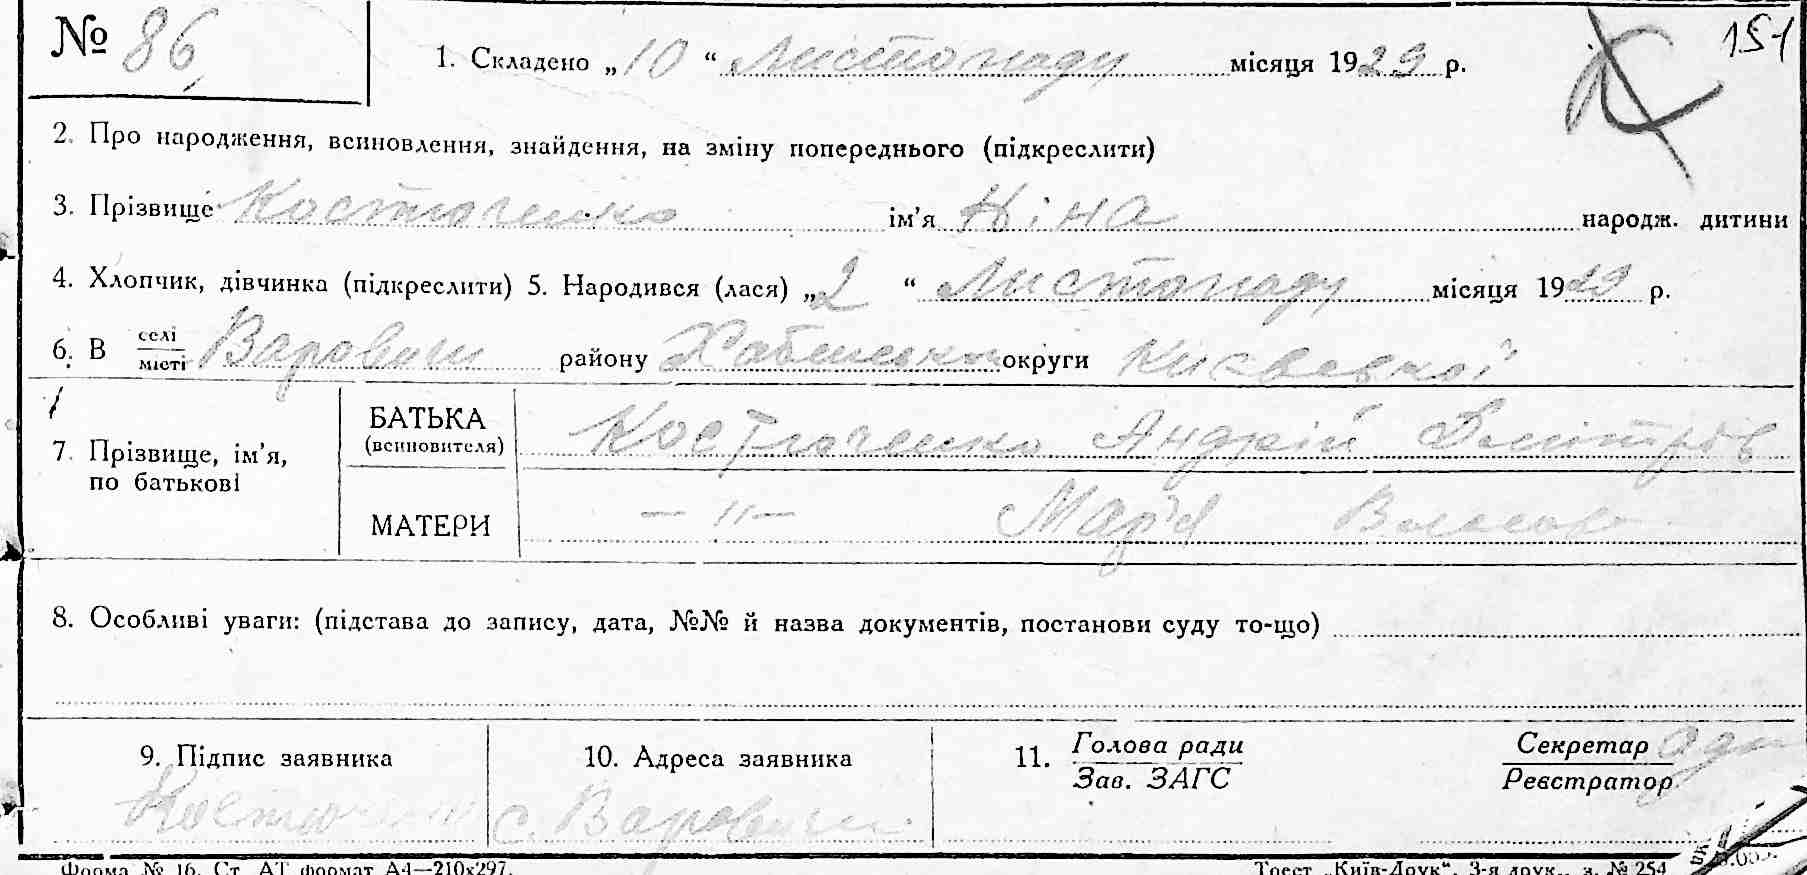 № 86 1. Складено „10“ Листопаду місяця 1929 р. 151
2. Про народження, всиновлення, знайдення, на зміну попереднього (підкреслити)
3. Прізвище Костюченко ім’я Ніна народж. дитини
4. Хлопчик, дівчинка (підкреслити) 5. Народився (лася) „2“ Листопаду місяця 1929 р.
6. В селі/місті Варовичи району Хабенсько округи Києвської
7. Прізвище, ім’я, по батькові
БАТЬКА (всиновителя) Костюченко Андрій Дмитров
МАТЕРИ —〃— Мар'я Власов
8. Особливі уваги: (підстава до запису, дата, №№ й назва документів, постанови суду то-що)
9. Підпис заявника 10. Адреса заявника 11. Голова ради/Зав. ЗАГС Секретар/Реєстратор
с. Варовичи
Форма № 16. Ст. АТ формат А4—210х297. Трест „Київ-Друк“. 3-я друк., з. № 254